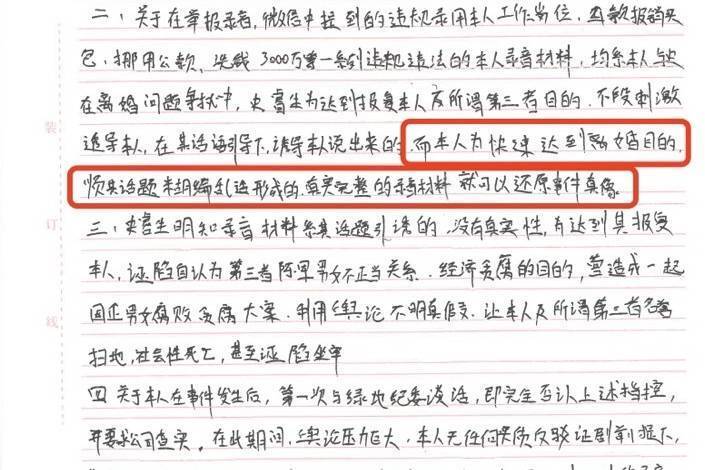 二、关于在举报录音，微信中提到的违规录用本人工作岗位，血款报销买
包、挪用公款、洗钱3000万第一条到违规违法的本人录音材料，均系本人与史
在离婚问题争执中，史雪生为达到报复本人及所谓第三者目的，不段刺激
追导本人，在其话语引导下，诱导本人说出来的，而本人为快速达到离婚目的，
顺其话题未胡编乱造形成的，真实完整的录音材料就可以还原事件真像。
三、史雪生明知录音材料系其话题引诱的，没有真实性，为达到其报复
本人，诬陷自认为第三者陈军男女不正当关系，经济贪腐的目的，营造成一起
国企男女腐败贪腐大案，利用舆论不明真假，让本人及所谓第三者名誉
扫地，社会性死亡，甚至诬陷坐牢
四 关于本人在事件发生后，第一次与绿地纪委谈话，即完全否认上述指控，
并要求公司查实。在此期间，舆论压力巨大，本人无任何实质反驳证剧前提下，
装
订
线